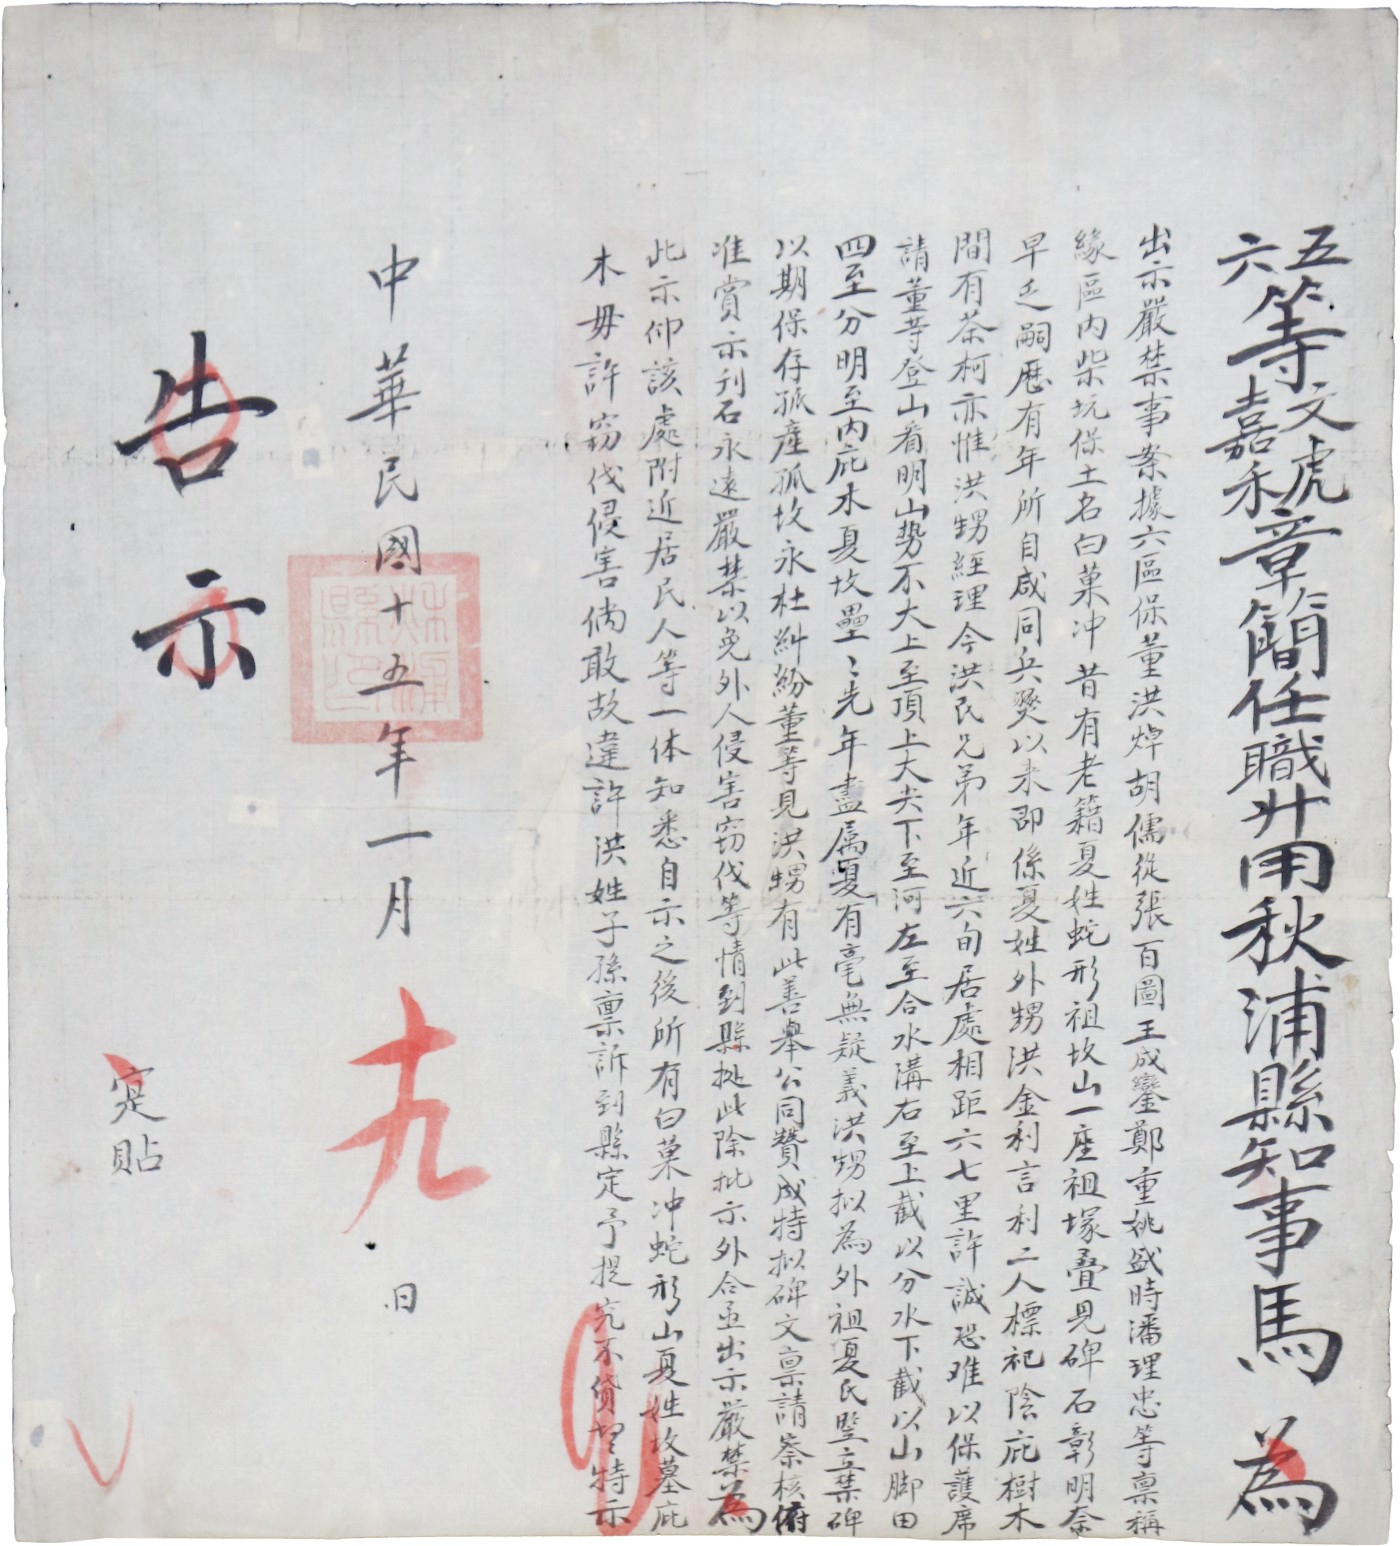 五六等文虎嘉禾章簡任職升用秋浦縣知事馬 為
出示嚴禁事案據六區保董洪焯胡儒從張百圖王成鑾鄭重姚盛時潘理忠等稟稱
緣區内柴坑保土名白菓冲昔有老籍夏姓蛇形祖坟山一座祖塚疊見碑石彰明奈
早乏嗣歷有年所自咸同兵燹以来即係夏姓外甥洪金利言利二人標祀陰庇樹木
間有茶柯亦惟洪甥經理今洪民兄弟年近六旬居處相距六七里許誠恐难以保護席
請董等登山看明山势不大上至頂上大尖下至河左至合水溝右至上截以分水下截以山脚田
四至分明至内庇木夏坟壘〻先年盡属夏有毫無疑義洪甥拟為外祖夏氏竪立禁碑
以期保存孤産孤坟永杜糾紛董等見洪甥有此善舉公同贊成特拟碑文稟請察核俯
准賞示刋石永遠嚴禁以免外人侵害窃伐等情到縣拠此除批示外合亟出示嚴禁為
此示仰該處附近居民人等一体知悉自示之後所有白菓冲蛇形山夏姓坟墓庇
木毋許窃伐侵害倘敢故違許洪姓子孫稟訴到縣定予提究不貸切切特示
中華民國十五年一月十九日
秋浦縣印
告示
寔貼